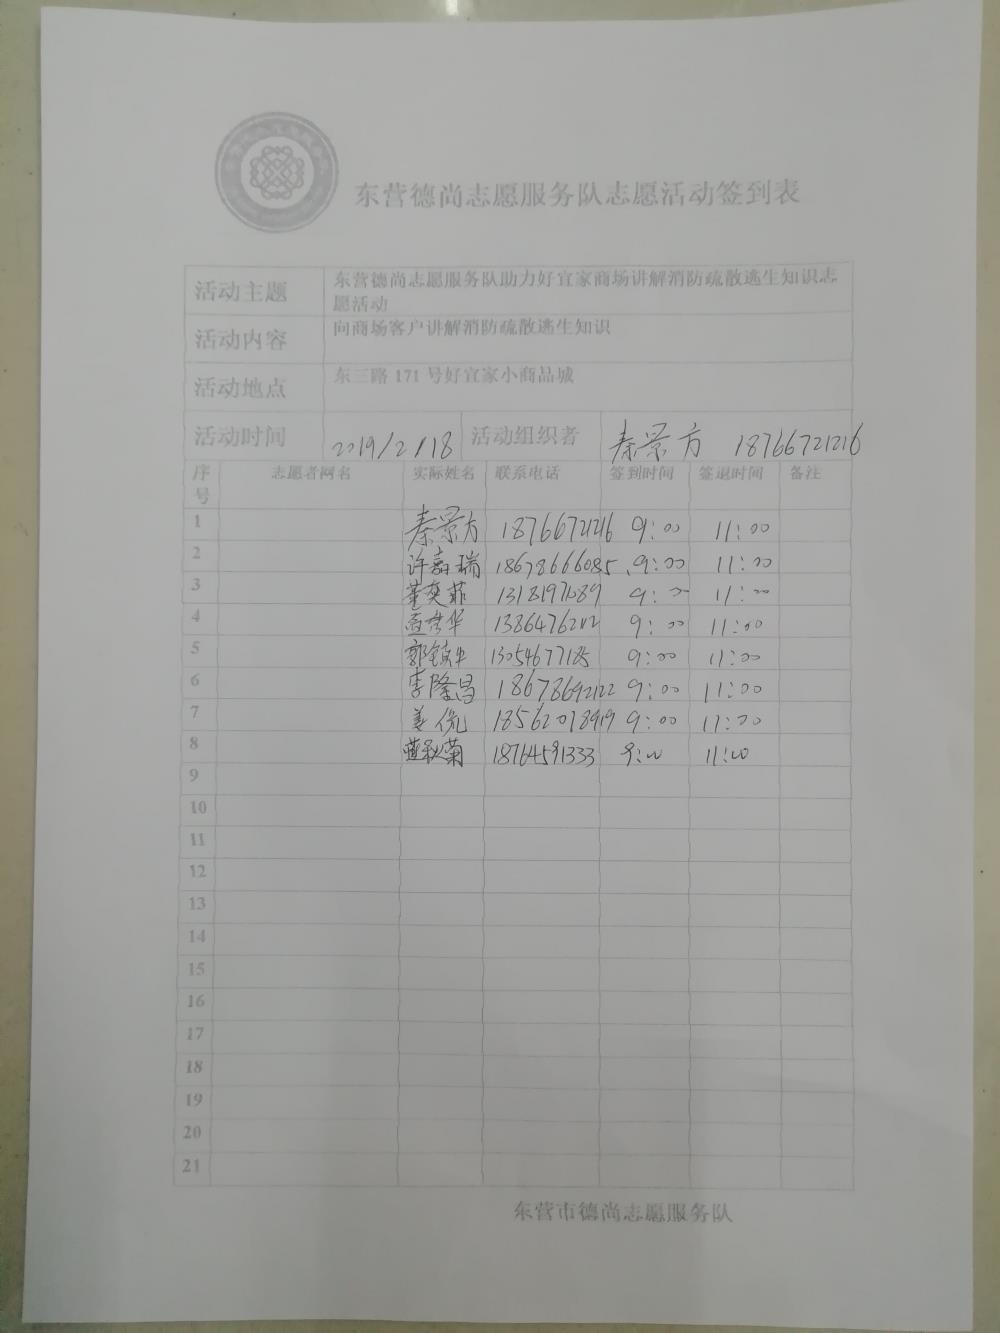 东营德尚志愿服务队志愿活动签到表
活动主题 东营德尚志愿服务队助力好宜家商场讲解消防疏散逃生知识志
愿活动
活动内容 向商场客户讲解消防疏散逃生知识
活动地点 东三路 171 号好宜家小商品城
活动时间 2019/2/18 活动组织者 秦景方 18766721216
序号 志愿者网名 实际姓名 联系电话 签到时间 签退时间 备注
1 秦景方 18766721216 9:00 11:00
2 许嘉瑞 18678666085 9:00 11:00
3 董奕菲 9:00 11:00
4 9:00 11:00
5 郭镇 13054677185 9:00 11:00
6 李隆昌 18678692122 9:00 11:00
7 姜侃 18562018919 9:00 11:00
8 秋菊 18764591333 9:00 11:00
9
10
11
12
13
14
15
16
17
18
19
20
21
东营市德尚志愿服务队